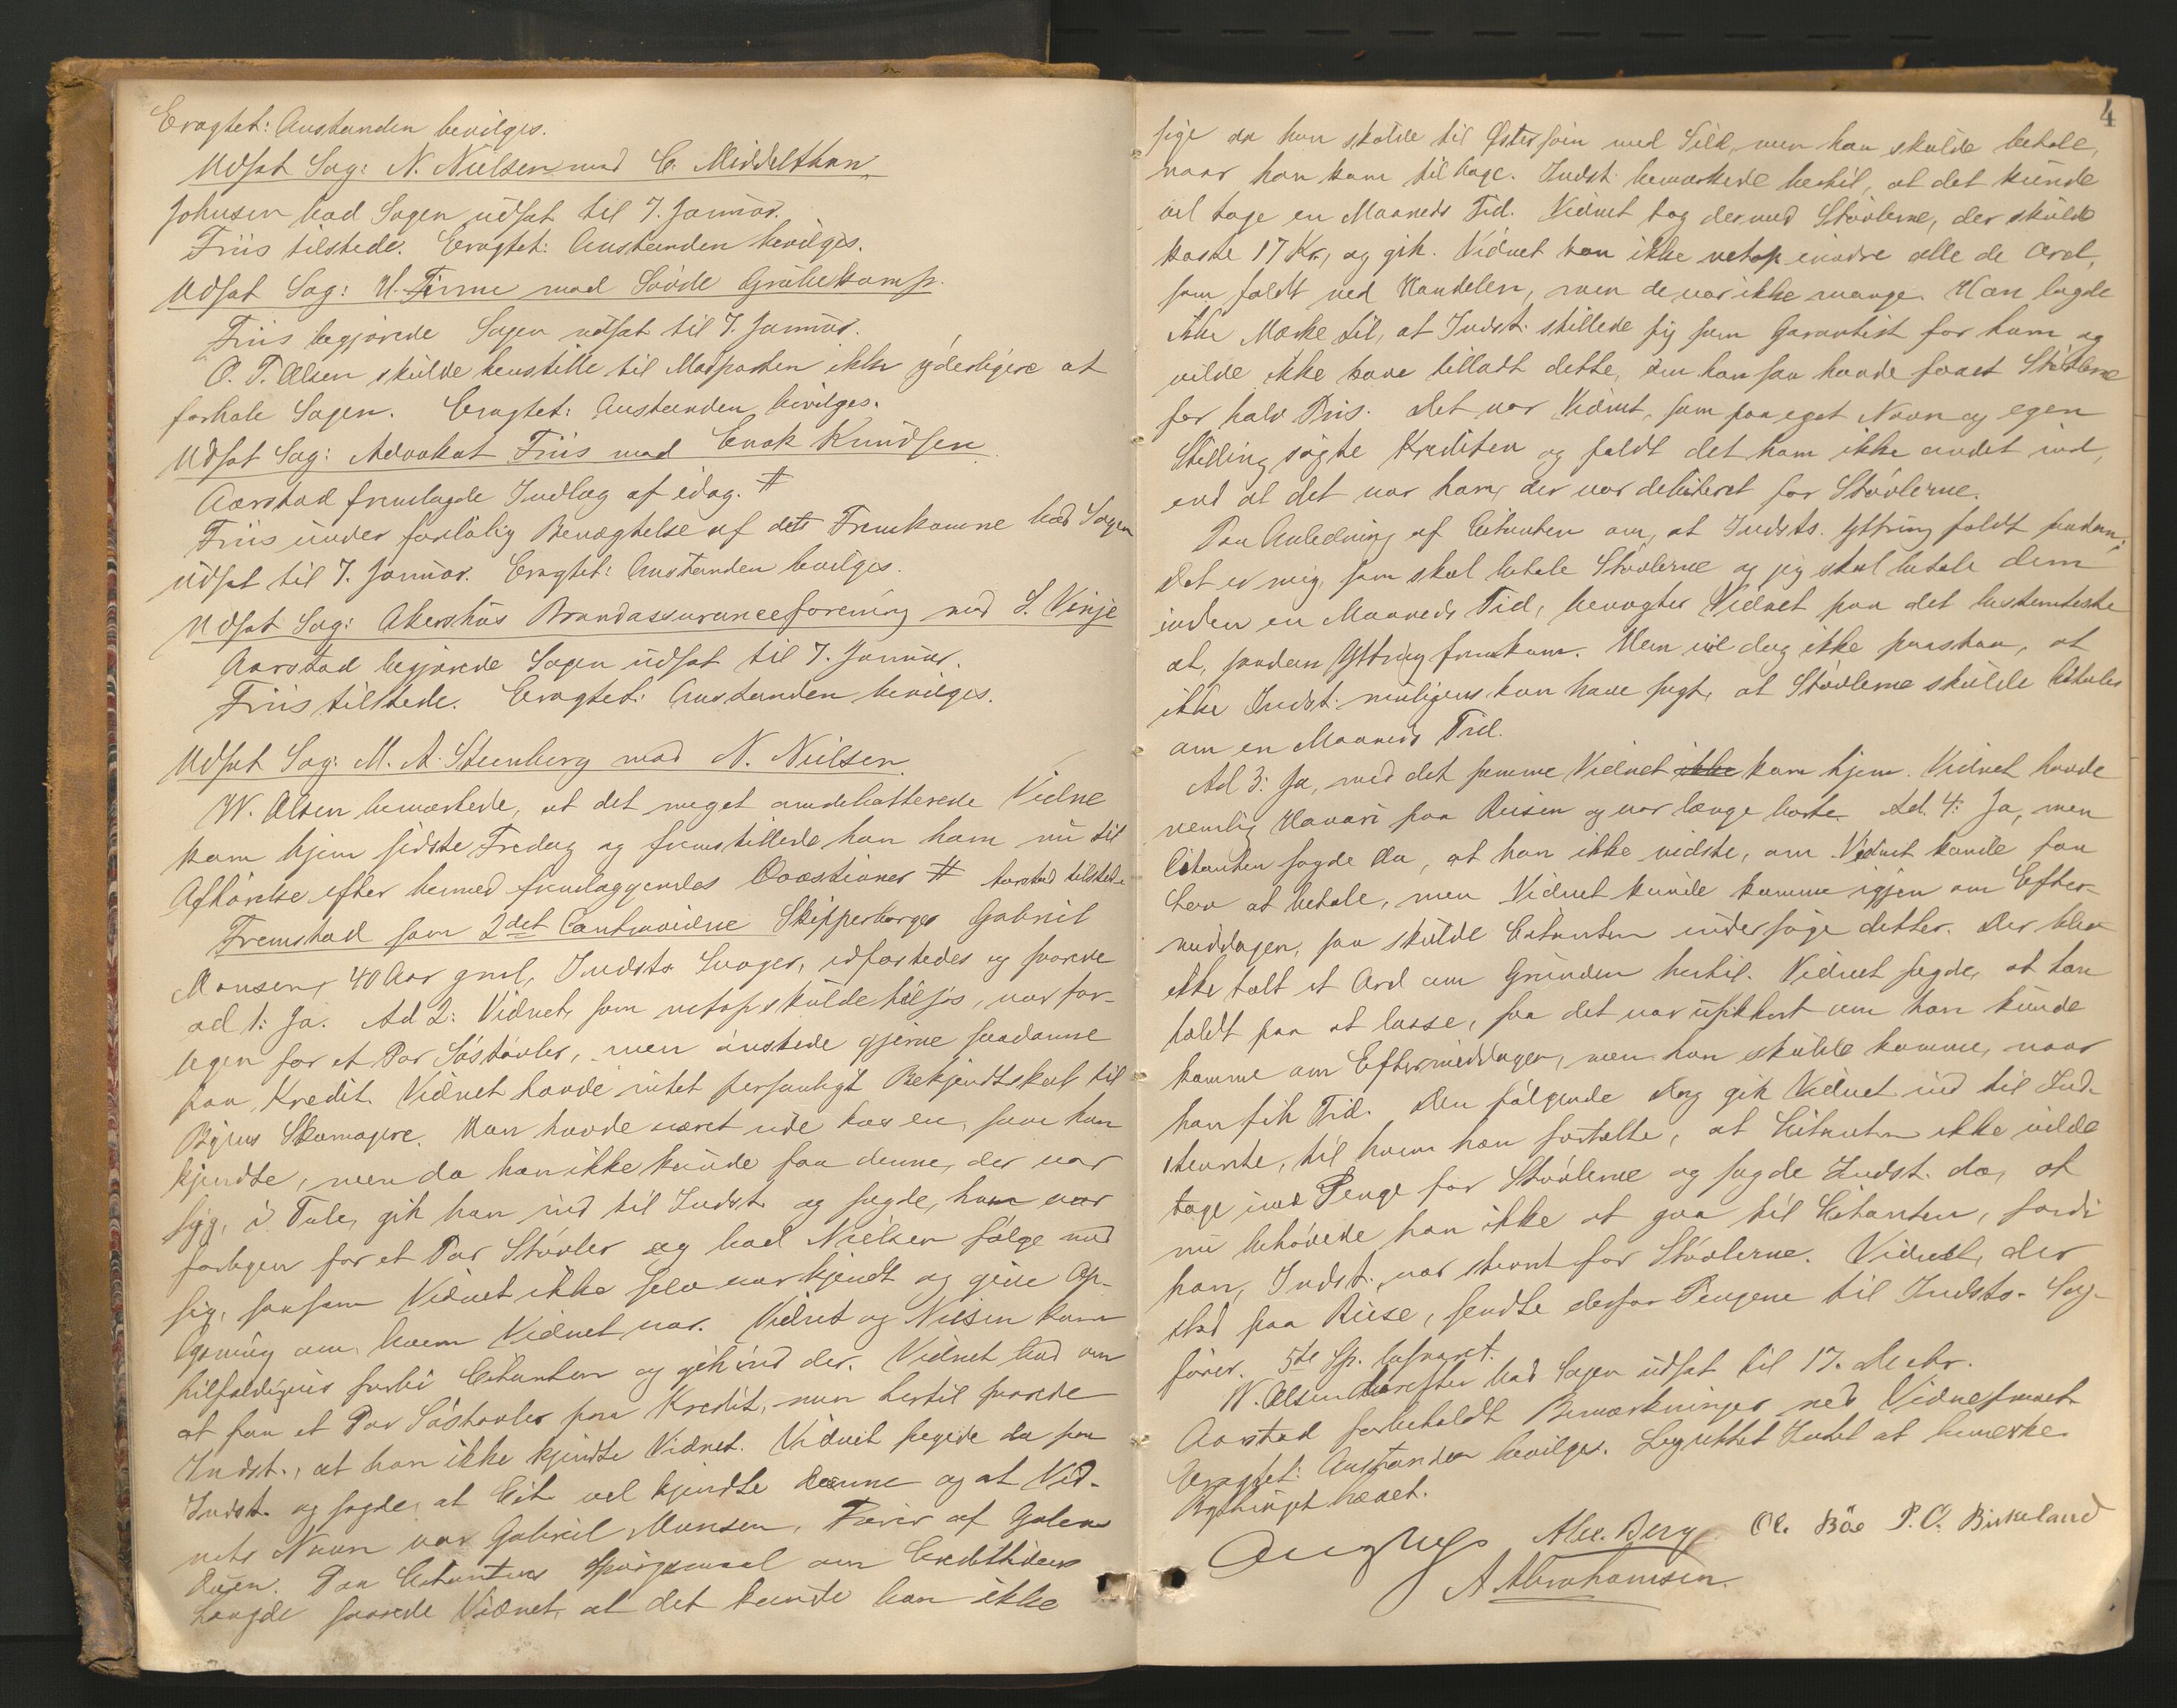 Eragtet: Anstanden bevilges.
Udsat Sag: N. Nielsen mod C. Middelthon
Johnsen bad Sagen udsat til 7. Januar.
Friis tilstede. Eragtet: Anstanden bevilges.
Udsat Sag: H. Finne mod Søvde Grubekomp.
Friis begjærede Sagen udsat til 7. Januar.
O. T. Olsen skulde henstille til Modparten ikke yderligere at
forhale Sagen. Eragtet: Anstanden bevilges.
Udsat Sag: Advokat Friis mod Enok Knudsen
Aarstad fremlagde Indlæg af idag. #
Friis under forløbig Benægtelse af det Fremkomne bad Sagen
udsat til 7. Januar. Eragtet: Anstanden bevilges.
Udsat Sag: Akershus Brandassuranceforening mod S. Vinje
Aarstad begjærede Sagen udsat til 7. Januar.
Friis tilstede. Eragtet: Anstanden bevilges.
Udsat Sag: M. A. Steenberg mod N. Nielsen
W. Olsen bemærkede, at det meget omdebatterede Vidne
kom hjem sidste Fredag og fremstillede han ham nu til
Afhørelse efter hermed fremlæggendes Qvæstioner # Aarstad tilstede
Fremstod som 2det Contravidne Skipperborger Gabriel
Monsen, 40 Aar gml, Indsts Svoger, edfæstedes og svarede
ad 1: Ja. Ad 2: Vidnet, som netop skulde tilsjøs, var for-
legen for et Par Søstøvler, men ønskede gjerne saadanne
paa Kredit. Vidnet havde intet personligt Bekjendtskab til
Byens Skomagere. Han havde været ude hos en, som han
kjendte, men da han ikke kunde faa denne, der var
syg, i Tale, gik han ind til Indst. og sagde, han var
forlegen for et Par Støvler og bad Nielsen følge med
sig, saasom Vidnet ikke selv var kjendt og give Op-
lysning om, hvem Vidnet var. Vidnet og Nielsen kom
tilfældigvis forbi Citanten og gik ind der. Vidnet bad om
at faa et Par Søstøvler paa Kredit, men hertil svarede
Indst., at han ikke kjendte Vidnet. Vidnet pegede da paa
Indst. og sagde, at Cit. vel kjendte denne og at Vid-
nets Navn var Gabriel Monsen, Fører af Galeas
Duen. Paa Citantens Spørgsmaal om Credittidens
Længde svarede Vidnet, at det kunde han ikke
4
sige da han skulde til Østersøen med Sild, men han skulde betale,
naar han kom tilbage. Indst. bemærkede hertil, at det kunde
vel tage en Maaneds Tid. Vidnet tog dermed Støvlerne, der skulde
koste 17 Kr., og gik. Vidnet kan ikke netop erindre alle de Ord,
som faldt ved Handelen, men de var ikke mange. Han lagde
ikke Mærke til, at Indst. stillede sig som Garantist for ham og
vilde ikke have tilladt dette, om han saa havde faaet Støvlerne
for halv Pris. Det var Vidnet, som paa eget Navn og egen
Stilling søgte Krediten og faldt det ham ikke andet ind,
end at det var ham, der var debiteret for Støvlerne.
Paa Anledning af Citanten om, at Indsts. Yttring faldt saadan:
Det er mig, som skal betale Støvlerne og jeg skal betale dem
inden en Maaneds Tid, benægter Vidnet paa det bestemteste
at, saadan Yttring fremkom. Men vil dog ikke paastaa, at
ikke Indst. muligens kan have sagt, at Støvlerne skulde betales
om en Maaneds Tid.
Ad 3: Ja, med det samme Vidnet ikke kom hjem. Vidnet havde
nemlig Havari paa Reisen og var længe borte. Ad. 4: Ja, men
Citanten sagde da, at han ikke vidste, om Vidnet kunde faa
Lov at betale, men Vidnet kunde komme igjen om Efter-
middagen, saa skulde Citanten undersøge dette. Der blev
ikke talt et Ord om Grunden hertil. Vidnet sagde, at han
holdt paa at losse, saa det var usikkert om han kunde
komme om Eftermiddagen, men han skulde komme, naar
han fik Tid. Den følgende Dag gik Vidnet ind til Ind-
stevnte, til hvem han fortalte, at Citanten ikke vilde
tage imod Penge for Støvlerne og sagde Indst. da, at
nu behøvede han ikke at gaa til Citanten, fordi
han, Indst., var stevnt for Støvlerne. Vidnet, der
stod paa Reise, sendte derfor Pengene til Indsts. Sag-
fører. 5te Sp. besvaret.
W. Olsen derefter bad Sagen udsat til 17. Decbr.
Aarstad forbeholdt Bemærkninger ved Vidneprovet
Eragtet: Anstanden bevilges. Lagrettet Intet at bemerke.
Bythinget hævet.
Alex. Berg Ol. Bøe P. O. Birkeland
A Abrahamsen.